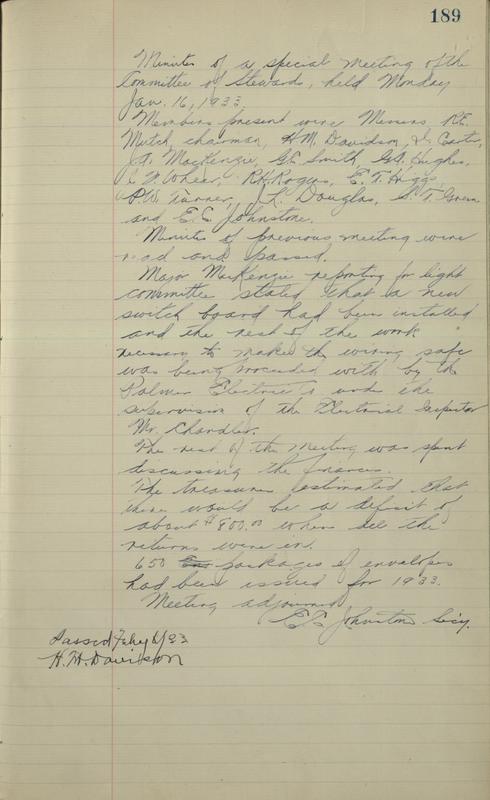 189
Minutes of a special meeting of the
Committee of Stewards, held Monday
Jan. 16, 1933.
Members present were Messrs. R.E.
Mutch, chairman, H.M. Davidson, J. Carter,
A. MacKenzie, G.E. Smith, G.A. Hughes,
W. Wheler, R.H. Rogers, E.T. Higgs,
P.W. Turner, J.L. Douglas, S.T. Green
and E.C. Johnstone.
Minutes of previous meeting were
read and passed.
Major MacKenzie reporting for light
committee stated that a new
switch board had been installed
and the rest of the work
necessary to make the wiring safe
was being proceeded with by the
Palmer Electric under the
supervision of the Electrical Inspector
Mr. Chandler.
The rest of the meeting was spent
discussing the finances.
The treasurer estimated that
there would be a deficit of
about $800.00 when all the
returns were in.
650 packages of envelopes
had been issued for 1933.
Meeting adjourned
E.C. Johnstone Secy.
Passed Feby
H.M. Davidson